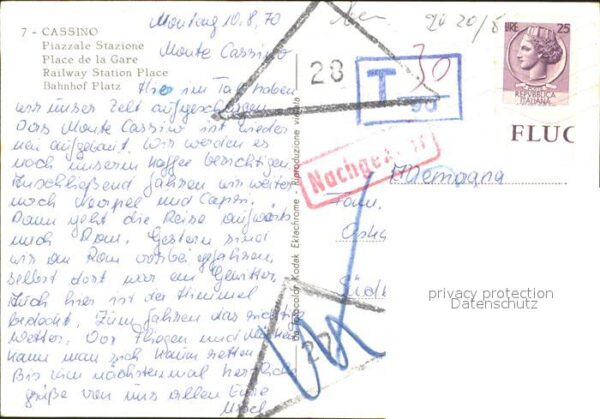 Montag 10.8.70
7 - CASSINO
Piazzale Stazione
Place de la Gare
Railway Station Place
Bahnhof Platz
Monte Cassino
Hier im Tal haben
wir unser Zelt aufgeschlagen.
Das Monte Cassino ist wieder
neu aufgebaut. Wir werden es
noch unserem Kaffee besichtigen
Anschließend fahren wir weiter
nach Neapel und Capri.
Dann geht die Reise aufwärts
nach Rom. Gestern sind
wir an Rom vorbei gefahren,
selbst dort war ein Gewitter.
Auch hier ist der Himmel
bedeckt. Zum fahren das richtige
Wetter. Vor Fliegen und
kann man sich kaum retten
Bis zum nächstenmal herzliche
grüße von uns allen Eure
28
T
30
20/8
LIRE 25
REPUBBLICA
ITALIANA
FLUG
Allemagna
Fam.
Süd
privacy protection
Datenschutz
Dacolor Kodak Ektachrome - Riproduzione vietata
22